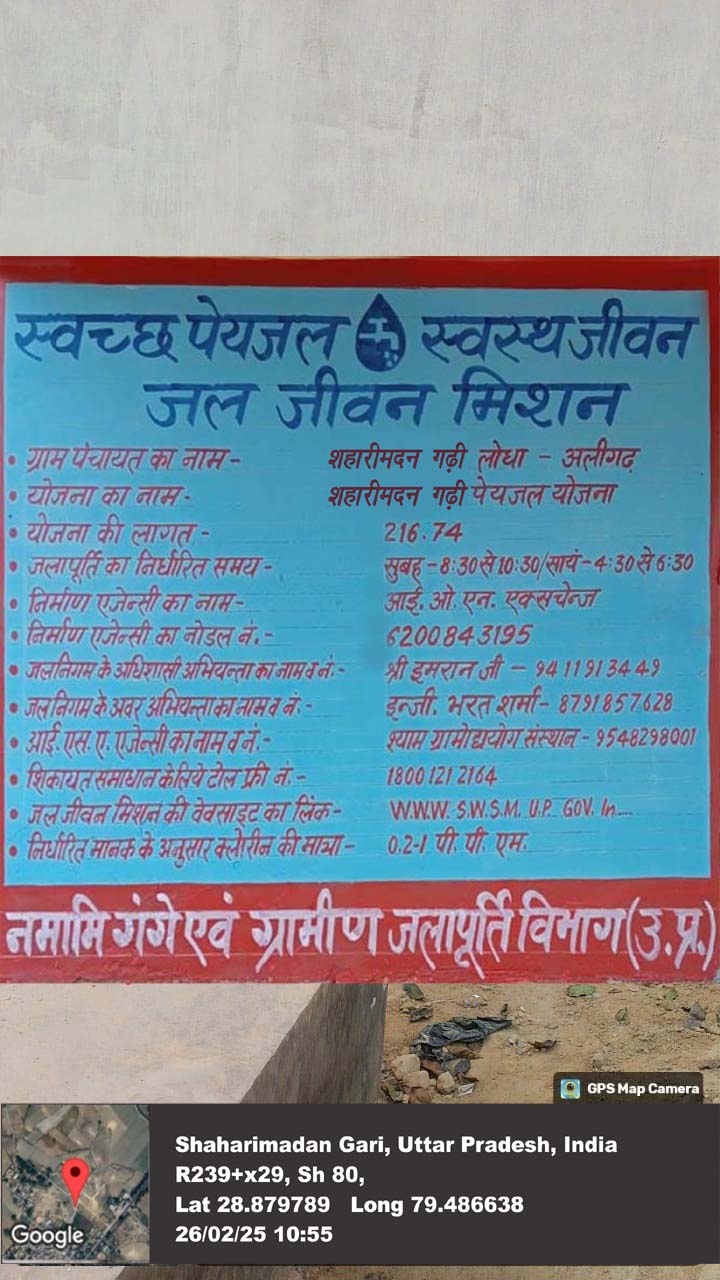 स्वच्छ पेयजल स्वस्थ जीवन
जल जीवन मिशन
• ग्राम पंचायत का नाम - शहारीमदन गढ़ी लोधा - अलीगढ़
• योजना का नाम - शहारीमदन गढ़ी पेयजल योजना
• योजना की लागत - 216.74
• जलापूर्ति का निर्धारित समय - सुबह - 8:30 से 10:30/सायं - 4:30 से 6:30
• निर्माण एजेन्सी का नाम - आई. ओ. एन. एक्सचेन्ज
• निर्माण एजेन्सी का नोडल नं. - 6200843195
• जल निगम के अधिशासी अभियन्ता का नाम व नं. - श्री इमरान जी - 9411913449
• जल निगम के अवर अभियन्ता का नाम व नं. - इन्जी. भरत शर्मा - 8791857628
• आई. एस. ए. एजेन्सी का नाम व नं. - श्याम ग्रामोद्ययोग संस्थान - 9548298001
• शिकायत समाधान के लिये टोल फ्री नं. - 1800 121 2164
• जल जीवन मिशन की वेवसाइट का लिंक - W.W.W. S.W.S.M. U.P. GOV. In....
• निर्धारित मानक के अनुसार क्लोरीन की मात्रा - 0.2-1 पी. पी. एम.
नमामि गंगे एवं ग्रामीण जलापूर्ति विभाग (उ.प्र.)
GPS Map Camera
Shaharimadan Gari, Uttar Pradesh, India
R239+x29, Sh 80,
Lat 28.879789 Long 79.486638
26/02/25 10:55
Google